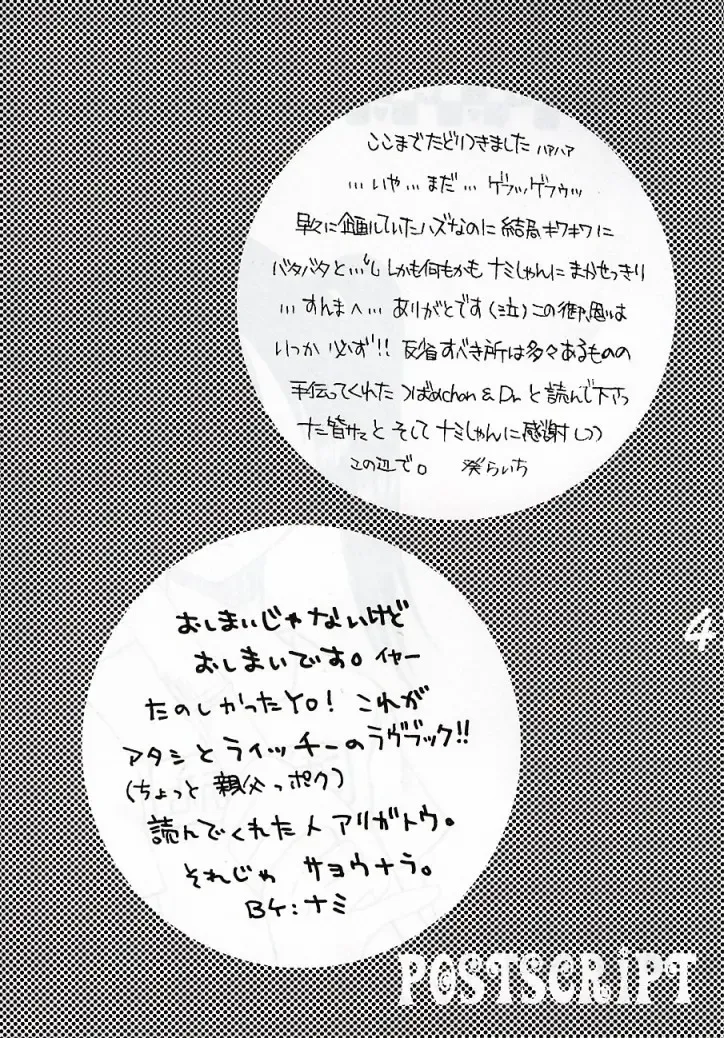 ここまでたどりつきました ハァハァ
…いや…まだ… ゲフッゲフゥッ
早々に企画していたハズなのに 結局ギワギワに
バタバタと…し しかも何もかも ナミしゃんにまかせっきり
…すんまへ… ありがとです(泣)この御恩は
いつか 必ず!! 反省すべき所は多々あるものの
手伝ってくれた つばめchan & Dr. と読んで下さっ
た皆サマと そして ナミしゃんに感謝しつつ
この辺で。 葵らいち
おしまいじゃないけど
おしまいです。イヤー
たのしかったYO! これが
アタシとライッチーのラヴブック!!
(ちょっと 親父っポク)
読んでくれた人アリガトウ。
それじゃ サヨウナラ。
BY:ナミ
4
POSTSCRIPT